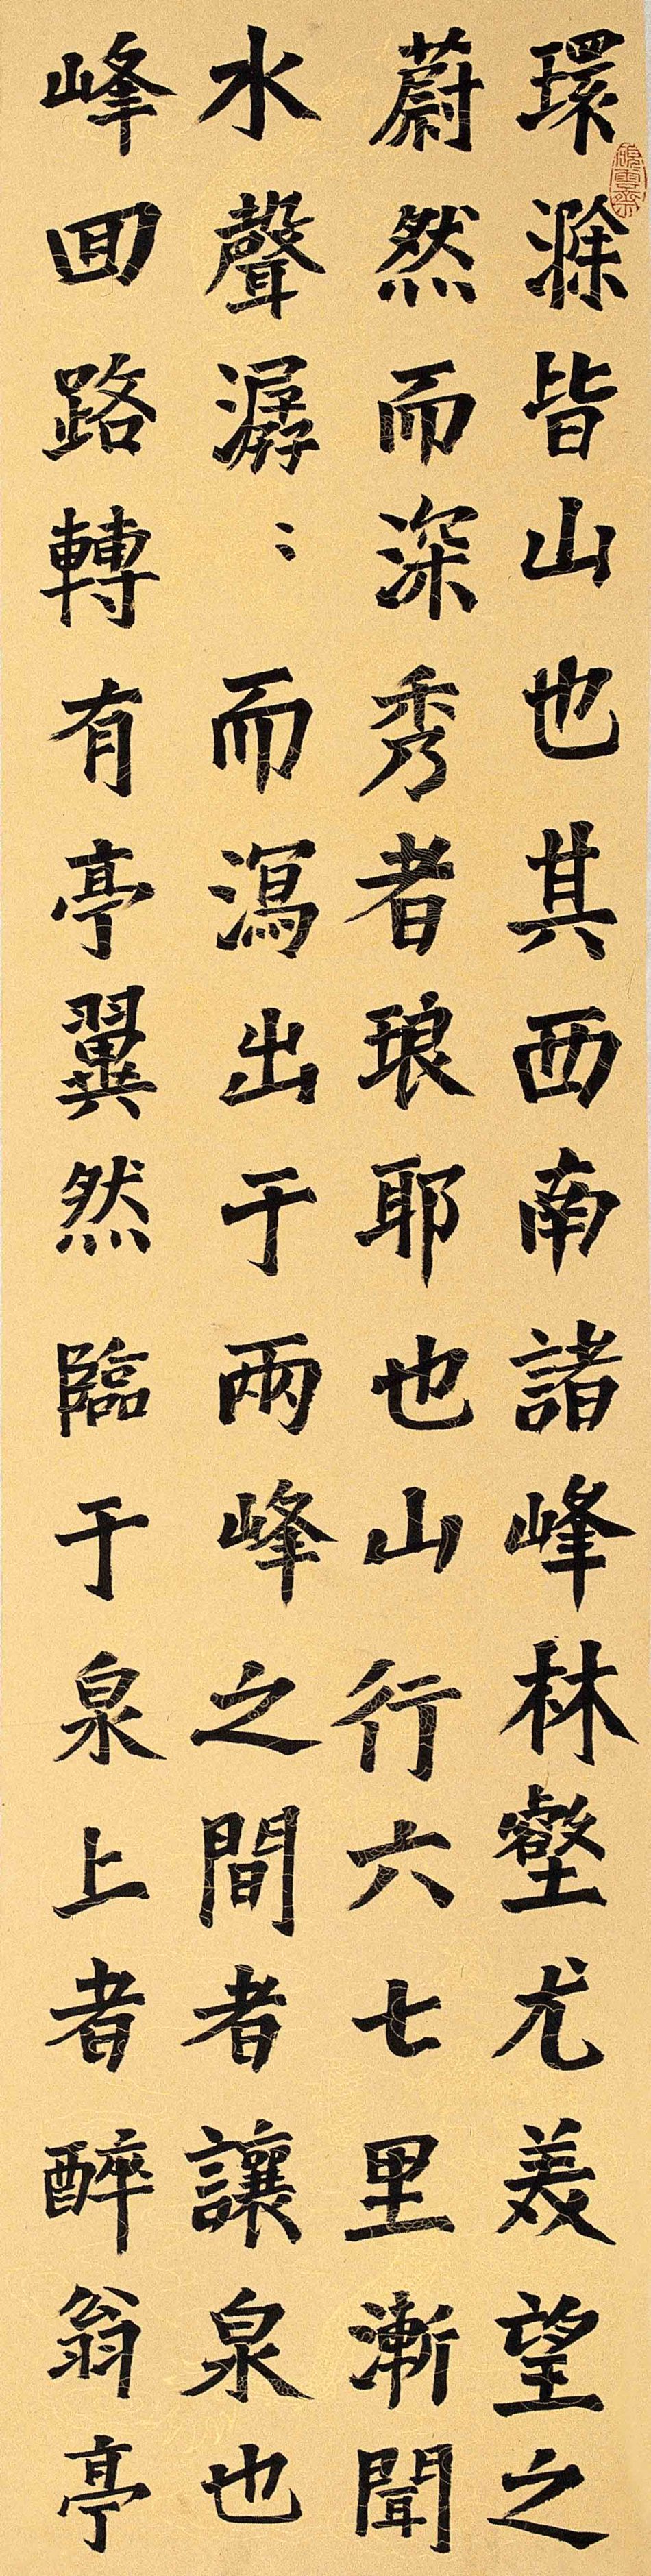 環滁皆山也其西南諸峰林壑尤美望之
蔚然而深秀者琅耶也山行六七里漸聞
水聲潺〻而瀉出于兩峰之間者讓泉也
峰回路轉有亭翼然臨于泉上者醉翁亭